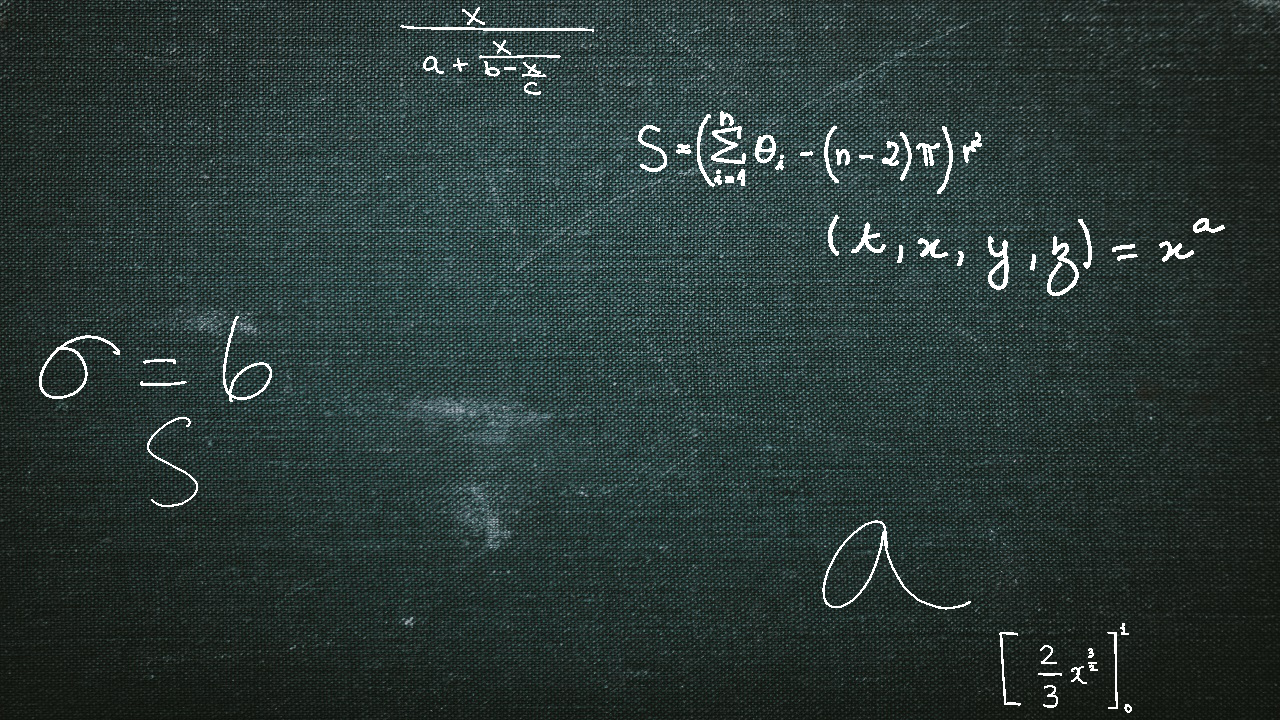 \frac{x}{a + \frac{x}{b - \frac{x}{c}}}
S = \left( \sum_{i=1}^{n} \theta_i - (n-2)\pi \right) r^2
(t, x, y, z) = x^a
\sigma = b
S
a
\left[ \frac{2}{3} x^{\frac{3}{2}} \right]_0^1